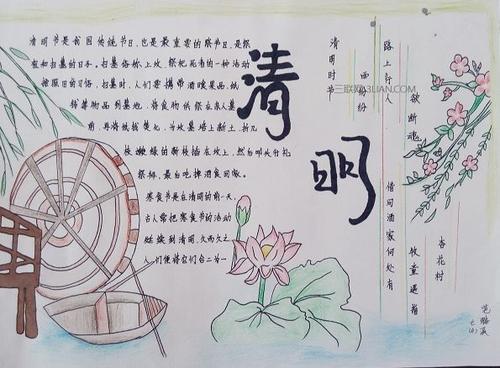 清明节是我国传统节日,也是最重要的祭节日,是祭
祖和扫墓的日子。扫墓俗称上坟,祭祀死者的一种活动
扫墓时,人们要携带酒食果品,纸
钱等物品到墓地,将食物供祭在亲人墓
前,再将纸钱焚化,为坟墓培上新土,折几
枝嫩绿的新枝插在坟上,然后叩头行礼
祭拜,最后吃掉酒食回家。
寒食节是在清明的前一天,
古人常把寒食节的活动
延续到清明,久而久之,
人们便将它们合二为一
清
明
清明时节
雨纷纷
路上行人
欲断魂
借问酒家何处有
牧童遥指
杏花村
三联网3LIAN.COM